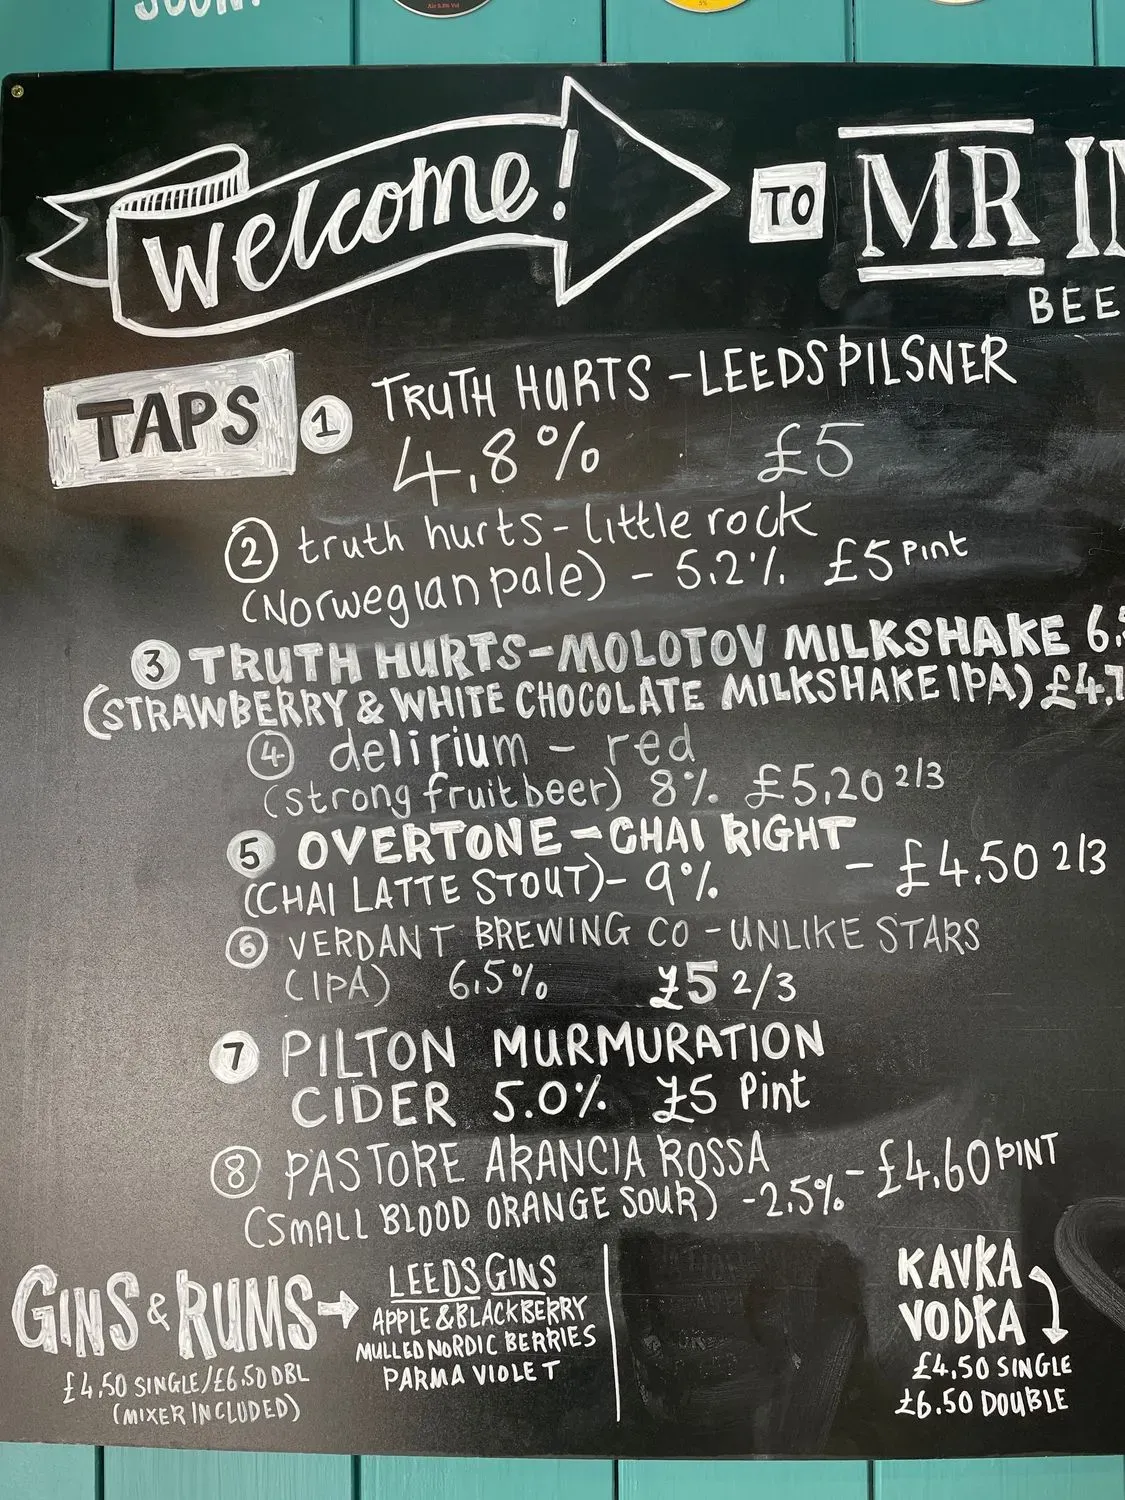 SOON!
Welcome!
TO
MR
BEE
TAPS
1 TRUTH HURTS - LEEDS PILSNER
4.8% £5
2 truth hurts - little rock
(Norwegian pale) - 5.2% £5 Pint
3 TRUTH HURTS - MOLOTOV MILKSHAKE
(STRAWBERRY & WHITE CHOCOLATE MILKSHAKE IPA)
4 delirium - red
(strong fruit beer) 8% £5.20 2/3
5 OVERTONE - CHAI RIGHT
(CHAI LATTE STOUT) - 9% - £4.50 2/3
6 VERDANT BREWING CO - UNLIKE STARS
(IPA) 6.5% £5 2/3
7 PILTON MURMURATION
CIDER 5.0% £5 Pint
8 PASTORE ARANCIA ROSSA
(SMALL BLOOD ORANGE SOUR) - 2.5% - £4.60 PINT
GINS & RUMS →
£4.50 SINGLE/£6.50 DBL
(MIXER INCLUDED)
LEEDS GINS
APPLE & BLACKBERRY
MULLED NORDIC BERRIES
PARMA VIOLET
KAVKA
VODKA
£4.50 SINGLE
£6.50 DOUBLE